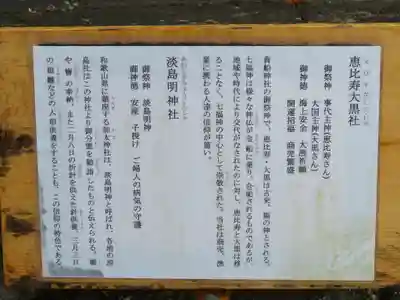 恵比寿大黒社
えびすだいこくしゃ
御祭神　事代主神(恵比寿さん)
大国主神(大黒さん)
御神徳　海上安全　大漁祈願
開運招福　商売繁盛
貴船神社の御祭神で、恵比寿・大黒は古来、福の神とされる。
七福神は様々な神仏が宝船に乗り、合祀されるものであるが、
地域や時代により交代がなされたのに対し、恵比寿と大黒は移
ることなく、七福神の中心として崇敬された。当社は商売、漁
業に携わる人達の信仰が篤い。
淡島明神社
あわしまみょうじんしゃ
御祭神　淡島明神
御神徳　安産　子授け　ご婦人の病気の守護
和歌山県に鎮座する加太神社は、淡島明神と呼ばれ、各地の淡
島社はこの神社より御分霊を勧請したものと伝えられる。櫛
や、簪の奉納、また二月八日の折針を供えた針供養、三月三日
の雛壇などの人形供養をすることも、この信仰の特色である。